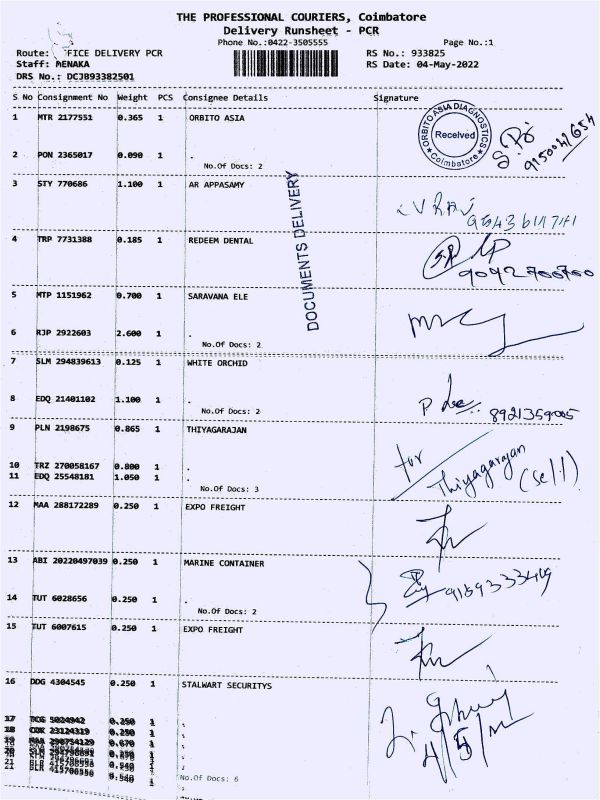 THE PROFESSIONAL COURIERS, Coimbatore
Delivery Runsheet - PCR
Phone No.:0422-3505555 Page No.:1
Route: FICE DELIVERY PCR RS No.: 933825
Staff: MENAKA RS Date: 04-May-2022
DRS No.: DCJ893382501
S No Consignment No Weight PCS Consignee Details Signature
1 MTR 2177551 0.365 1 ORBITO ASIA
ORBITO ASIA DIAGNOSTICS
Received
Coimbatore
9150042654
2 PON 2365017 0.090 1 .
No.Of Docs: 2
DOCUMENTS DELIVERY
3 STY 770686 1.100 1 AR APPASAMY
4 TRP 7731388 0.185 1 REDEEM DENTAL
9042700700
5 MTP 1151962 0.700 1 SARAVANA ELE
6 RJP 2922603 2.600 1 .
No.Of Docs: 2
7 SLM 294839613 0.125 1 WHITE ORCHID
8 EDQ 21401102 1.100 1 .
No.Of Docs: 2
8921359005
9 PLN 2198675 0.865 1 THIYAGARAJAN
for
Thiyagarajan
(self)
10 TRZ 270058167 0.800 1 .
11 EDQ 25548181 1.050 1 .
No.Of Docs: 3
12 MAA 288172289 0.250 1 EXPO FREIGHT
13 ABI 20220497039 0.250 1 MARINE CONTAINER
14 TUT 6028656 0.250 1 .
No.Of Docs: 2
15 TUT 6007615 0.250 1 EXPO FREIGHT
16 DDG 4304545 0.250 1 STALWART SECURITYS
17 5024942 0.250 1
18 23124319 0.250 1
19 MAA 290754129 0.670 1
No.Of Docs: 6